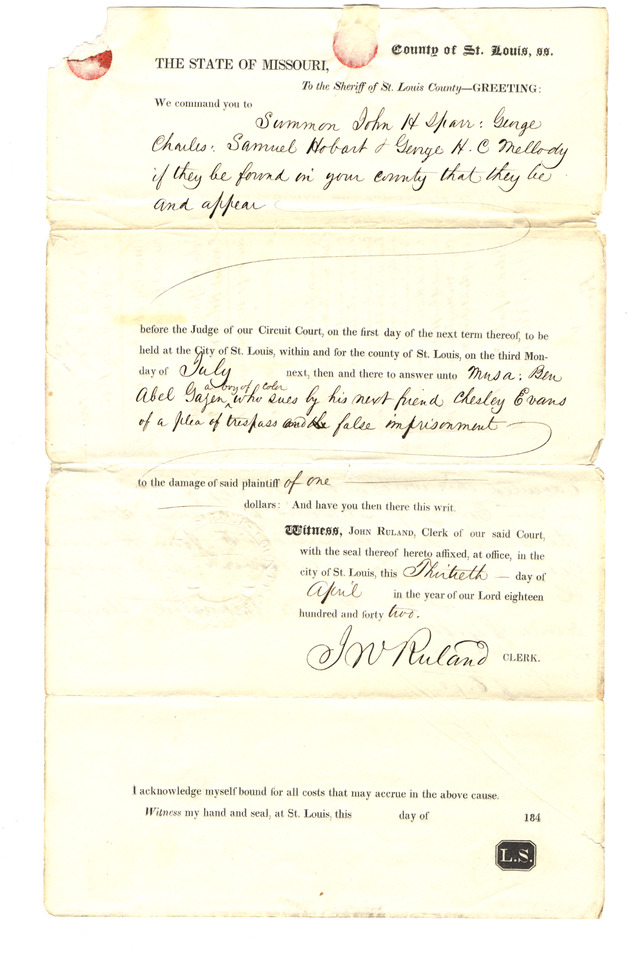 County of St. Louis, ss.
THE STATE OF MISSOURI,
To the Sheriff of St. Louis County—GREETING:
We command you to
Summon John H Sparr: George
Charles: Samuel Hobart & George H. C Mellody
if they be found in your county that they be
and appear
before the Judge of our Circuit Court, on the first day of the next term thereof, to be
held at the City of St. Louis, within and for the county of St. Louis, on the third Mon-
day of July next, then and there to answer unto Musa: Ben
a boy of color
Abel Gazen who sues by his next friend Chesley Evans
of a plea of trespass and false imprisonment
to the damage of said plaintiff of one
dollars: And have you then there this writ.
Witness, JOHN RULAND, Clerk of our said Court,
with the seal thereof hereto affixed, at office, in the
city of St. Louis, this Thirtieth — day of
April in the year of our Lord eighteen
hundred and forty two.
J W Ruland CLERK.
I acknowledge myself bound for all costs that may accrue in the above cause.
Witness my hand and seal, at St. Louis, this day of 184
L.S.